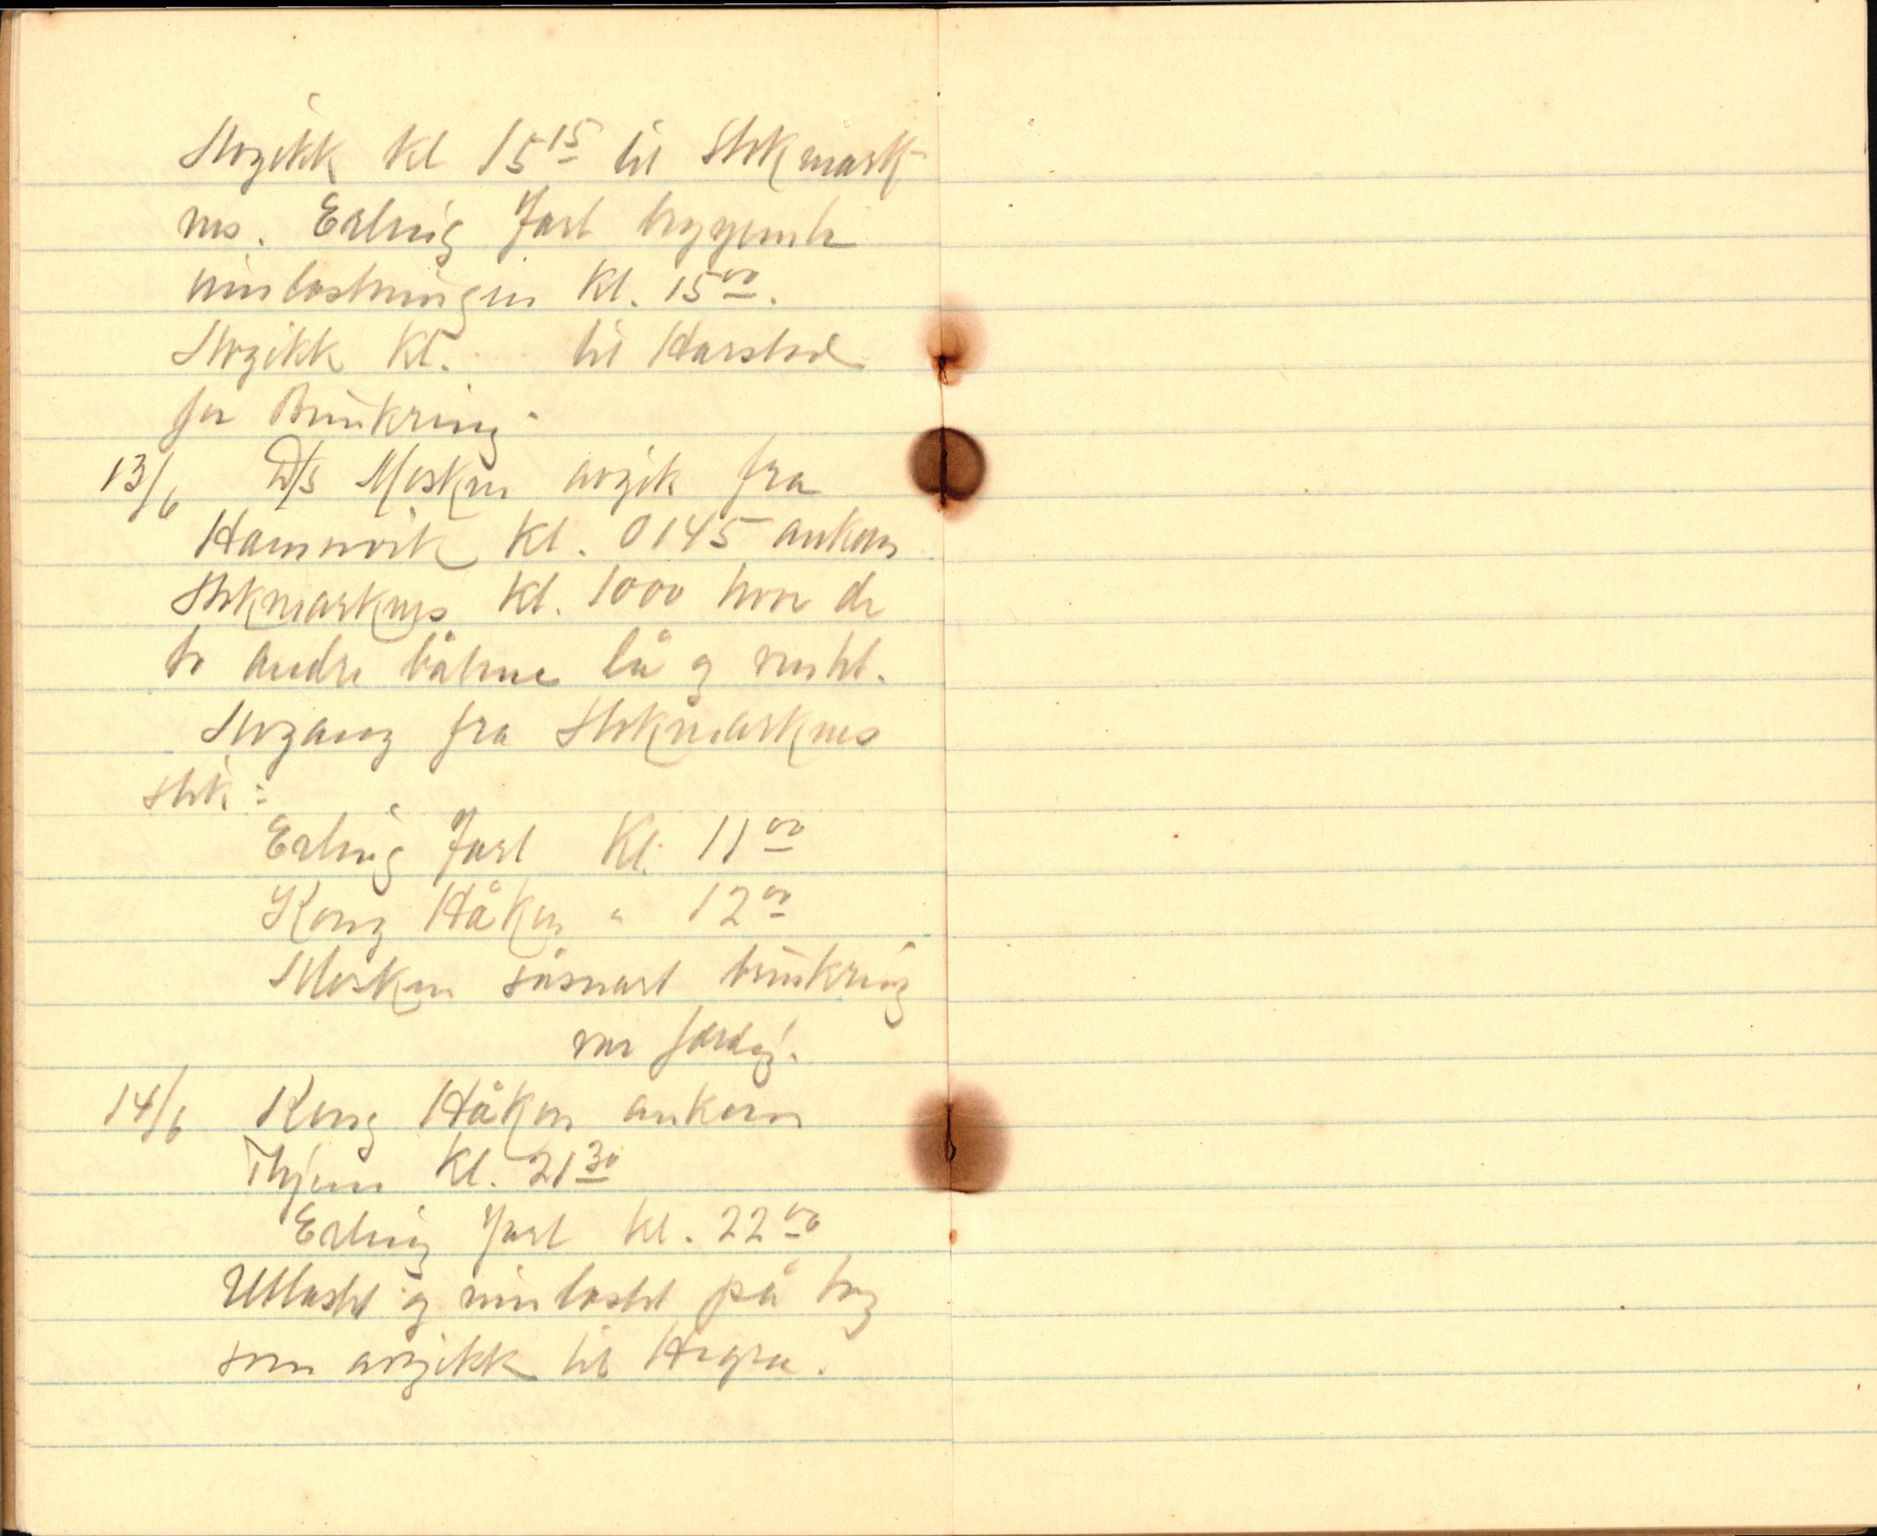 Avgikk kl 15 15 til Stokmark-
nes. Erling Jarl begynnte
innlastningen kl. 15 00.
Avgikk kl. til Harstad
for Bunkring.
13/6 D/S Mosken avgik fra
Hamnvik kl. 0145 ankom
Stokmarknes kl. 1000 hvor de
to andre båtene lå og ventet.
Avgang fra Stokmarknes
slik:
Erling Jarl Kl. 11 00
Kong Håkon " 12 00
Mosken såsnart bunkring
var færdig.
14/6 Kong Håkon ankom
kl. 21 30
Erling Jarl kl. 22 00
Utlastet og innlastet på tog
som avgikk til Hegra.